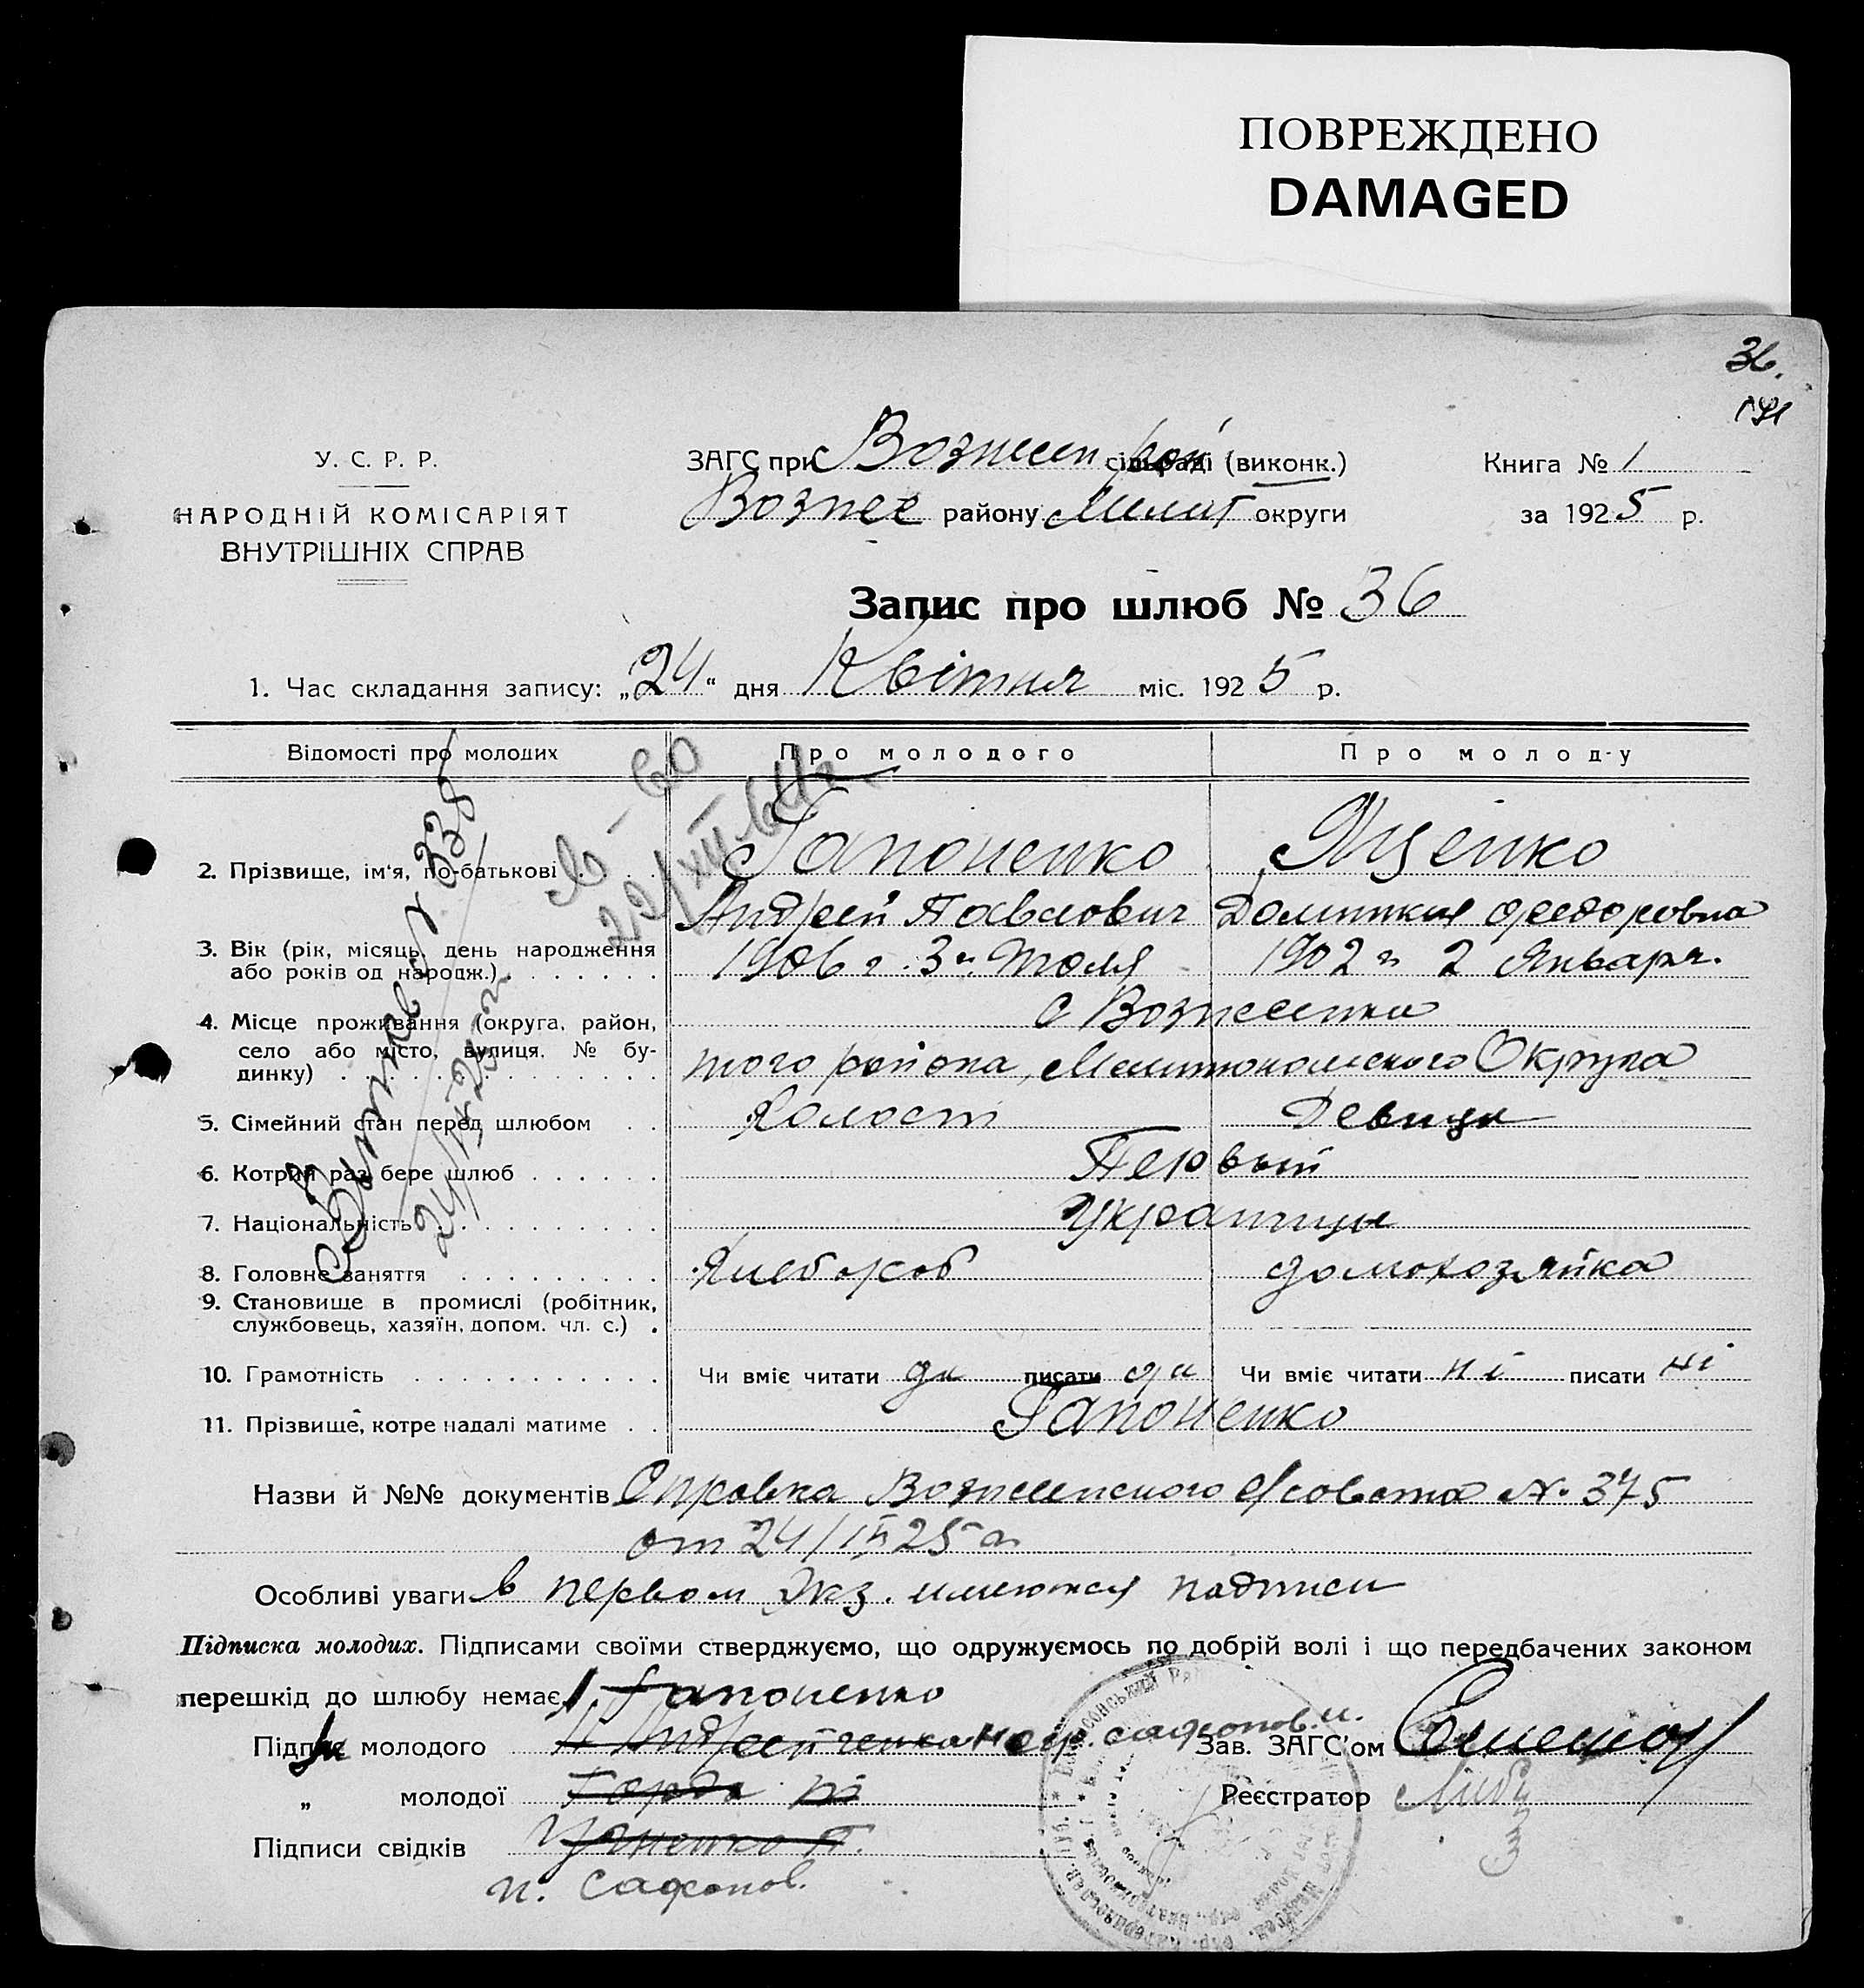 ПОВРЕЖДЕНО
DAMAGED
36.
У. С. Р. Р.
НАРОДНІЙ КОМІСАРІЯТ
ВНУТРІШНІХ СПРАВ
ЗАГС при Вознесен рай сільраді (виконк.)
Вознес району Мелит округи
Книга № 1
за 1925 р.
Запис про шлюб № 36
1. Час складання запису: „24“ дня Квітня міс. 1925 р.
Відомості про молодих
Про молодого
Про молоду
2. Прізвище, ім'я, по-батькові
Гапоненко
Яценко
Андрей Павлович
Домникия Федоровна
3. Вік (рік, місяць, день народження
або років од народж.)
1906 г. 3 Июля
1902 г. 2 Января.
4. Місце проживання (округа, район,
село або місто, вулиця, № бу-
динку)
с Вознесенка
того района, Мелитопольского Округа
5. Сімейний стан перед шлюбом
Холост
Девица
6. Котрий раз бере шлюб
Первый
7. Національність
Украинцы
8. Головне заняття
Хлебороб
домохозяйка
9. Становище в промислі (робітник,
службовець, хазяїн, допом. чл. с.)
10. Грамотність
Чи вміє читати да писати да
Чи вміє читати ні писати ні
11. Прізвище, котре надалі матиме
Гапоненко
Назви й №№ документів Справка Вознесенского С/совета № 375
от 24/IV 25 г.
Особливі уваги в первом экз. имеются подписи
Підписка молодих. Підписами своїми стверджуємо, що одружуємось по добрій волі і що передбачених законом
перешкід до шлюбу немає Гапоненко
Підпис молодого
Зав. ЗАГС'ом
„ молодої
Реєстратор
Підписи свідків
п. Сафонов.